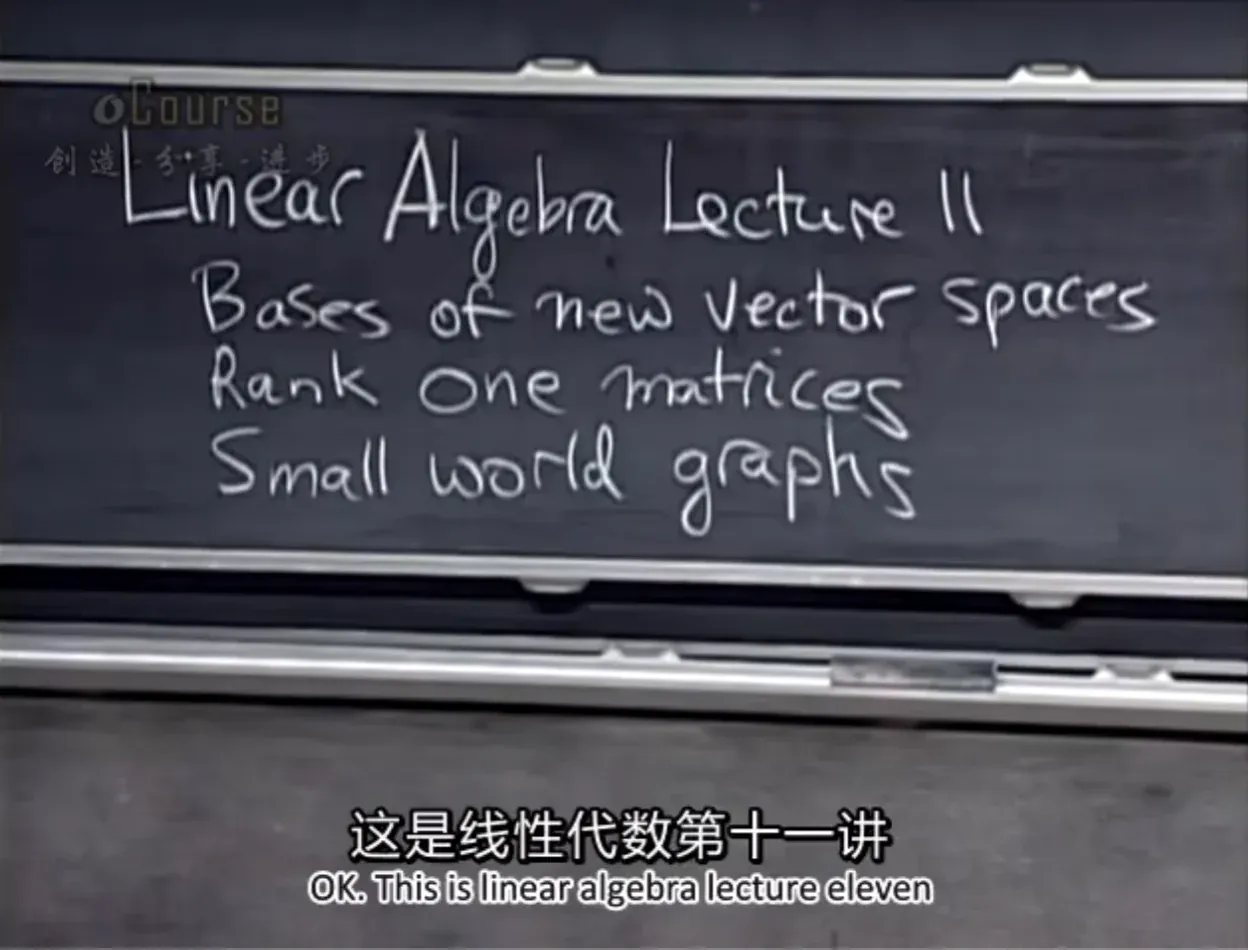 oCourse
創造·分享·进步
Linear Algebra Lecture 11
Bases of new vector spaces
Rank one matrices
Small world graphs
这是线性代数第十一讲
OK. This is linear algebra lecture eleven